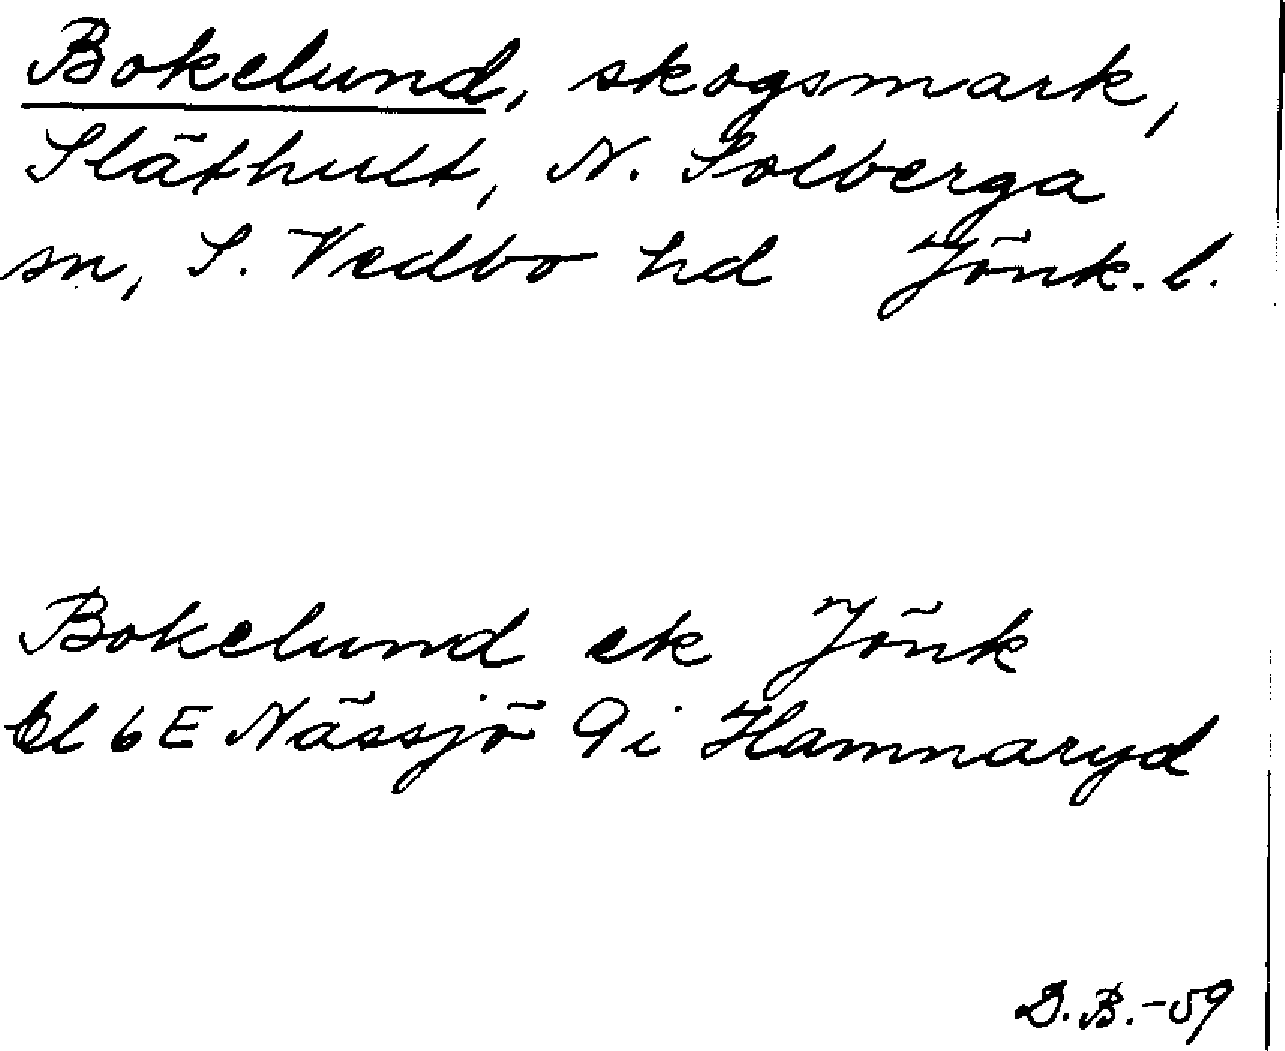 Bokelund, skogsmark,
Släthult, N. Solberga
sn, S. Vedbo hd Jönk. l.
Bokelund ek Jönk
bl 6E Nässjö 9i Hamnaryd
D.B.-59